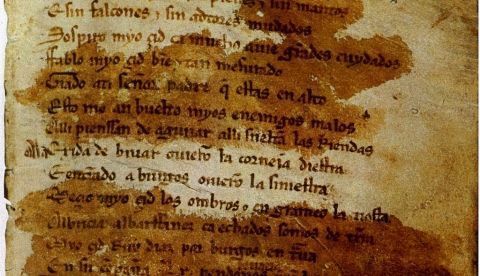 pielles z sin mantos
E sin falcones z sin adtores mudados
Sospiro myo çid ca mucho auie grãdes cuydados
Fablo myo çid bie z tan mesurado
Grado ati señor padre q estas en alto
Esto me an buelto myos enemigos malos
Alli pienssan de aguijar alli sueltã las Riendas
Ala Exida de biuar ouierõ la corneja diestra
Entrãdo a burgos ouierõ la siniestra
Meçio myo çid los ombros z en grameo la tiesta
Albricia albarffanez ca echados somos de tierra
Myo çid Ruy diaz por burgos
En su